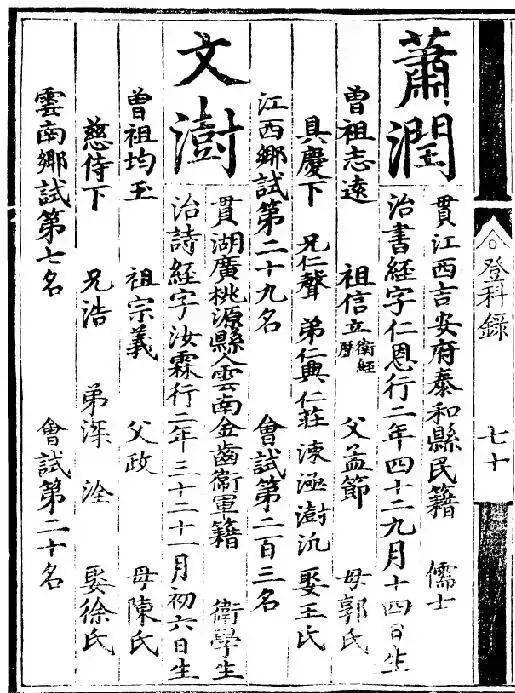 登科錄
七十
蕭潤
貫江西吉安府泰和縣民籍 儒士
治書經字仁恩行二年四十二九月十四日生
曾祖志遠 祖信立衛經歷 父孟節 母郭氏
具慶下 兄仁聲 弟仁興仁莊涑涵澍沉 娶王氏
江西鄉試第二十九名 會試第二百三名
文澍
貫湖廣桃源縣人雲南金齒衛軍籍 衛學生
治詩經字汝霖行二年三十二十一月初六日生
曾祖均玉 祖宗義 父政 母陳氏
慈侍下 兄浩 弟深 淦 娶徐氏
雲南鄉試第七名 會試第二十名